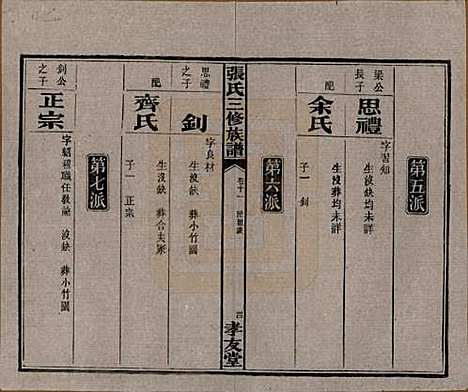 第五派
梁公長子
思禮
字習知
生沒缺葬均未詳
配
余氏
生沒葬均未詳
子一 釗
第六派
張氏三修族譜
卷十一
四
孝友堂
思禮之子
釗
字良材
生沒缺 葬小竹園
配
齊氏
生沒缺 葬合夫冢
子一 正宗
第七派
釗公之子
正宗
字紹禮職任教諭 沒缺 葬小竹園